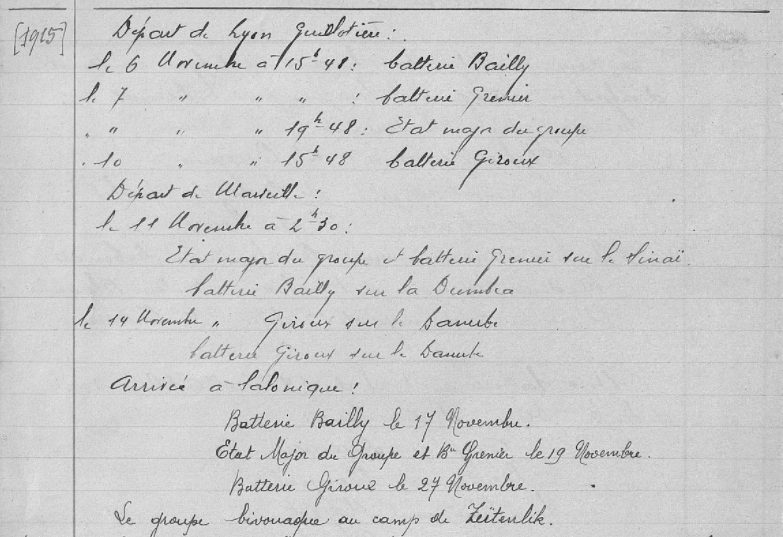 [1915]
Départ de Lyon Guillotière :
le 6 Novembre à 15h 48 : batterie Bailly
le 7 " " " : batterie Grenier
" " " " 19h 48 : Etat major du groupe
" 10 " " 15h 48 batterie Giroux
Départ de Marseille :
le 11 Novembre à 2h 30 :
Etat major du groupe et batterie Grenier sur le Sinaï
batterie Bailly sur la Dumbea
le 14 Novembre " Giroux sur le Danube
batterie Giroux sur le Danube
Arrivée à Salonique :
Batterie Bailly le 17 Novembre.
Etat Major du Groupe et Bie Grenier le 19 Novembre.
Batterie Giroux le 27 Novembre.
Le groupe bivouaque au camp de Zeïtenlik.